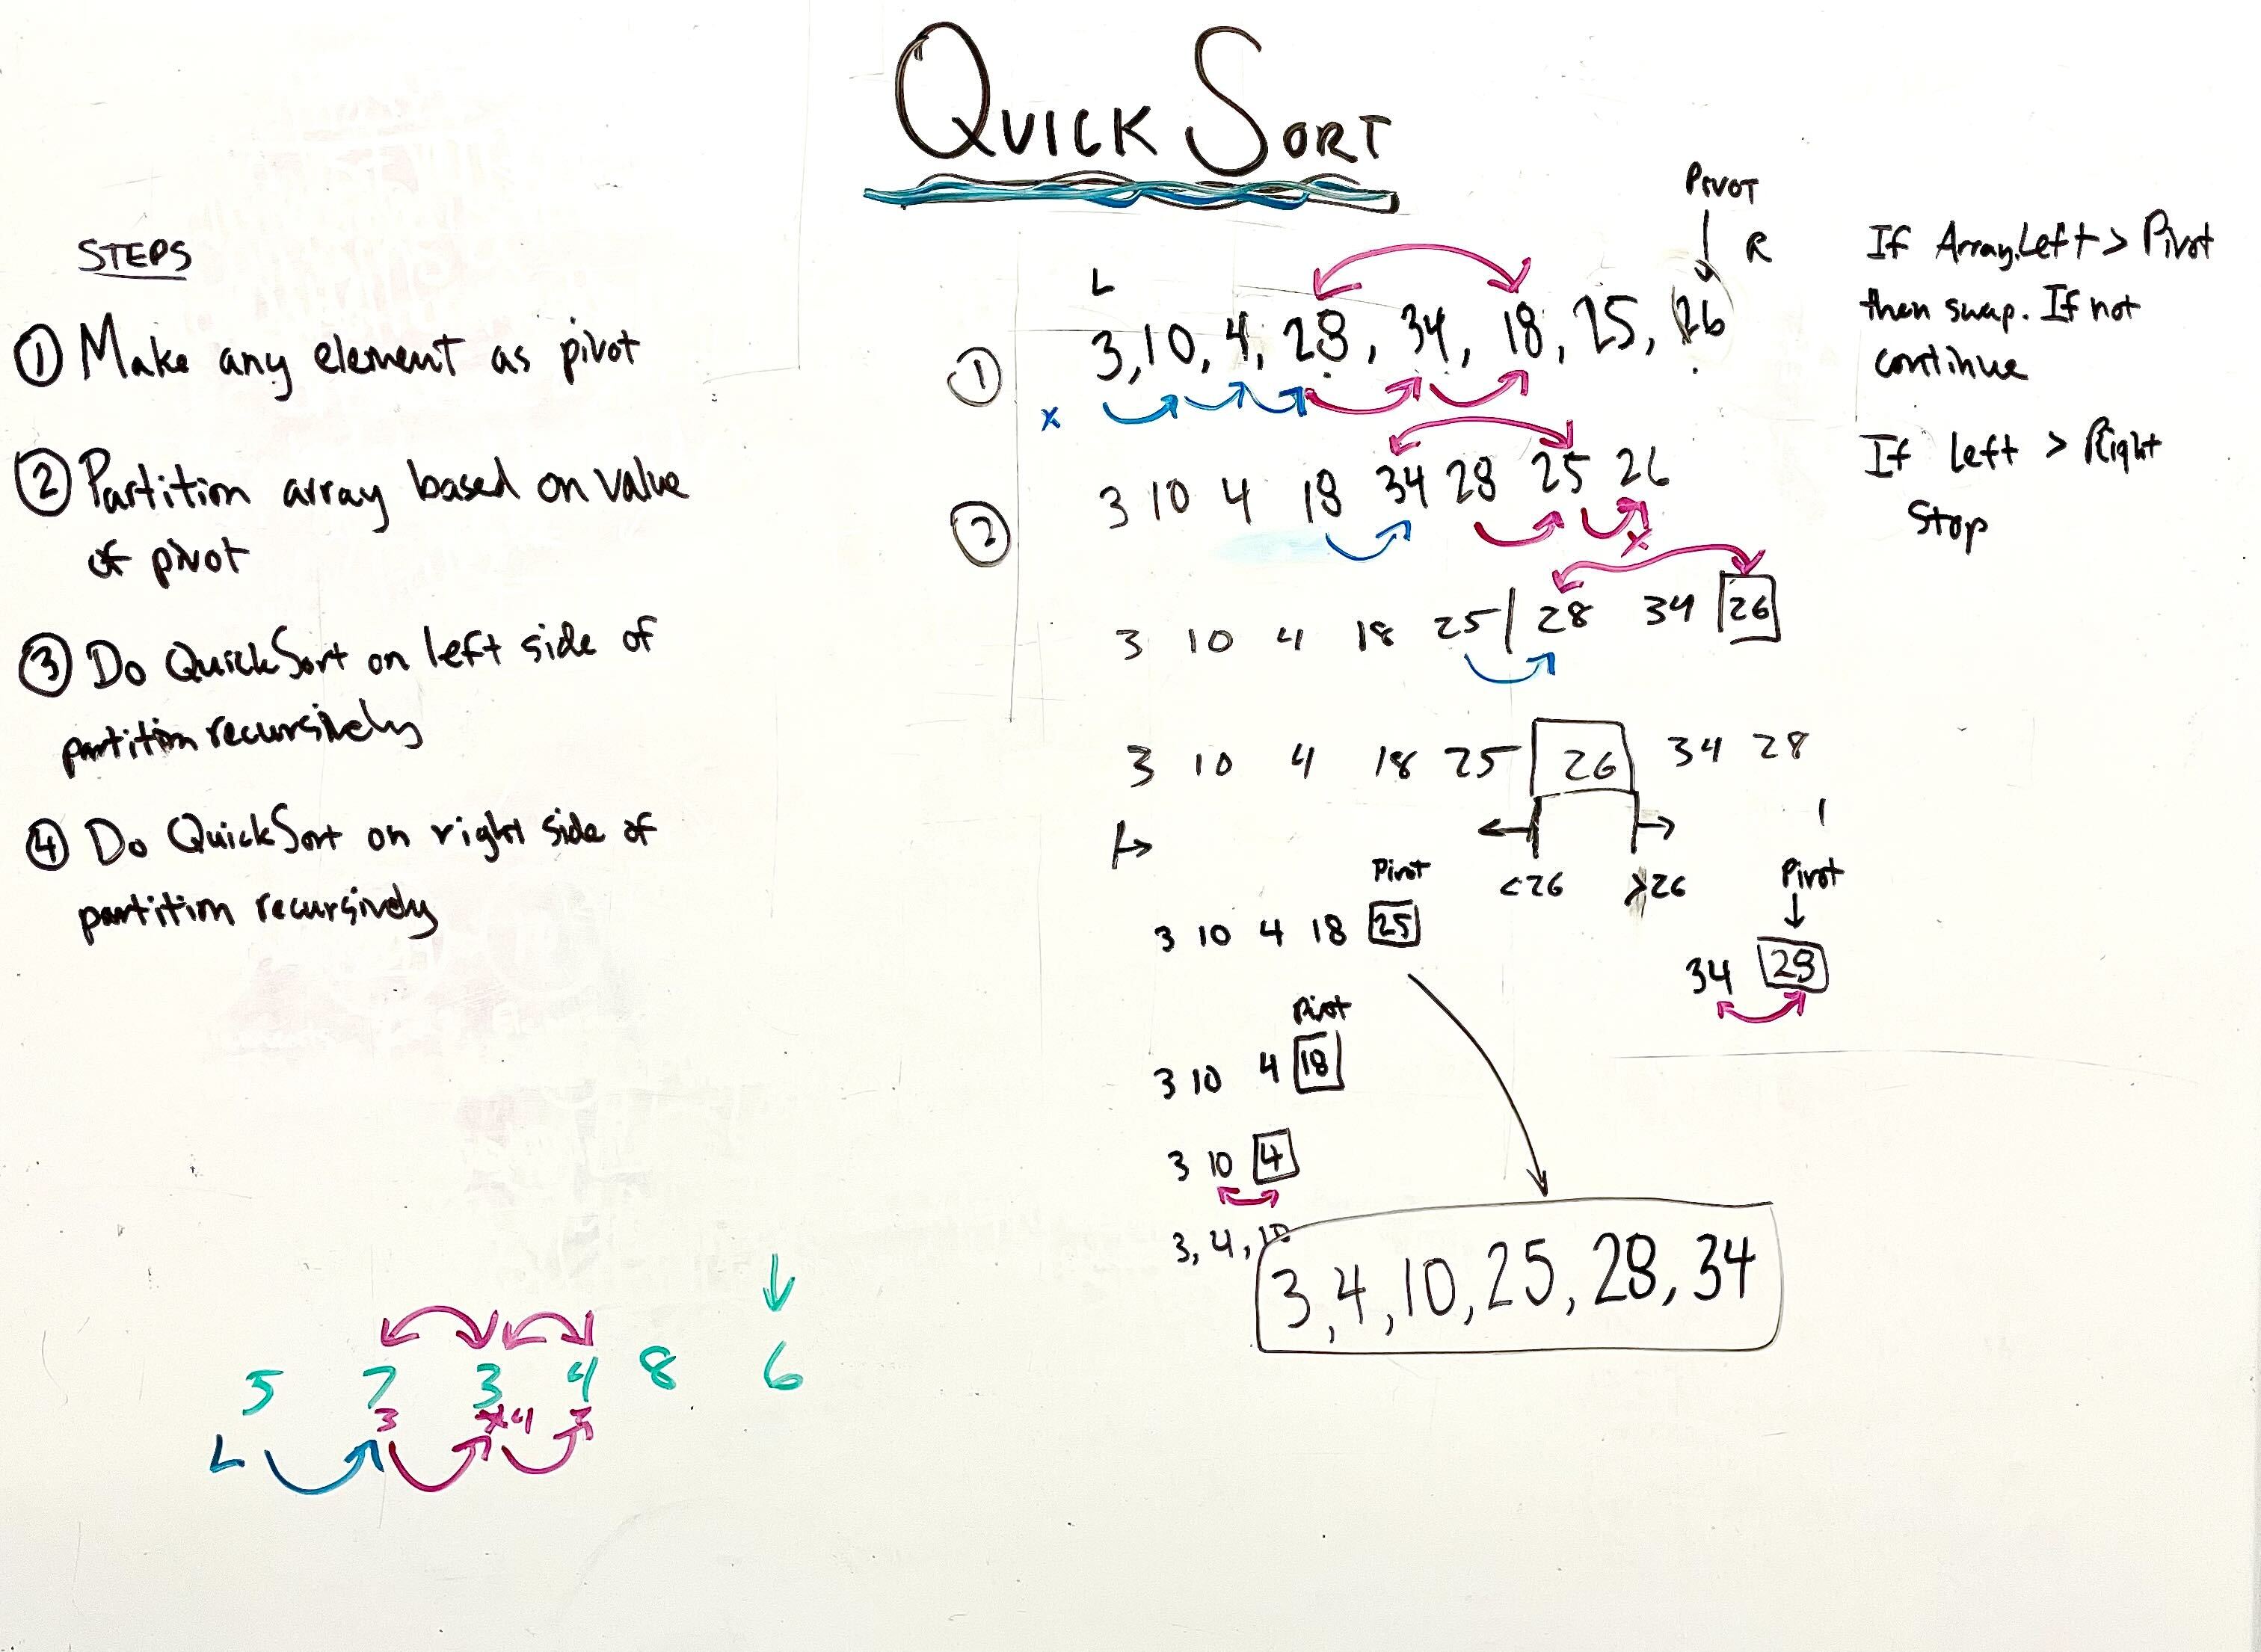 QUICK SORT
STEPS
① Make any element as pivot
② Partition array based on value
of pivot
③ Do QuickSort on left side of
partition recursively
④ Do QuickSort on right side of
partition recursively
PIVOT
L
R
① 3, 10, 4, 28, 34, 18, 25, 26
x
② 3 10 4 18 34 28 25 26
x
3 10 4 18 25 | 28 34 26
3 10 4 18 25 26 34 28
<26 >26
Pivot
3 10 4 18 25
Pivot
34 28
Pivot
3 10 4 18
3 10 4
3, 4, 10
3, 4, 10, 25, 28, 34
If Array.Left > Pivot
then swap. If not
continue
If left > Right
Stop
5 7 3 4 8 6
3 4
L